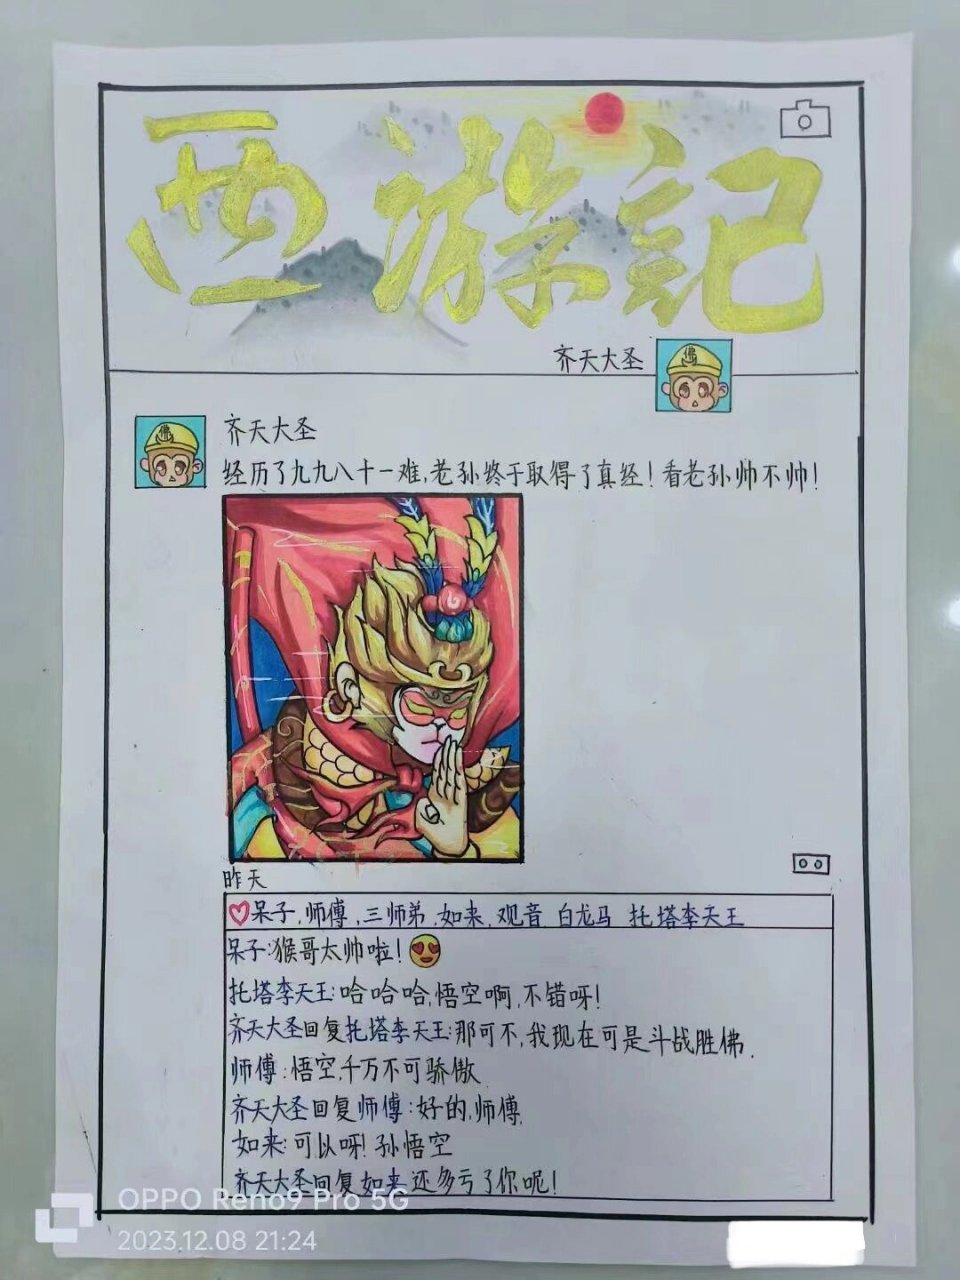 西游记
齐天大圣
齐天大圣
经历了九九八十一难,老孙终于取得了真经!看老孙帅不帅!
昨天
呆子,师傅,三师弟,如来,观音,白龙马 托塔李天王
呆子:猴哥太帅啦!
托塔李天王:哈哈哈,悟空啊,不错呀!
齐天大圣回复托塔李天王:那可不,我现在可是斗战胜佛.
师傅:悟空,千万不可骄傲
齐天大圣回复师傅:好的,师傅
如来:可以呀!孙悟空
齐天大圣回复如来:还多亏了你呢!
OPPO Reno9 Pro 5G
2023.12.08 21:24